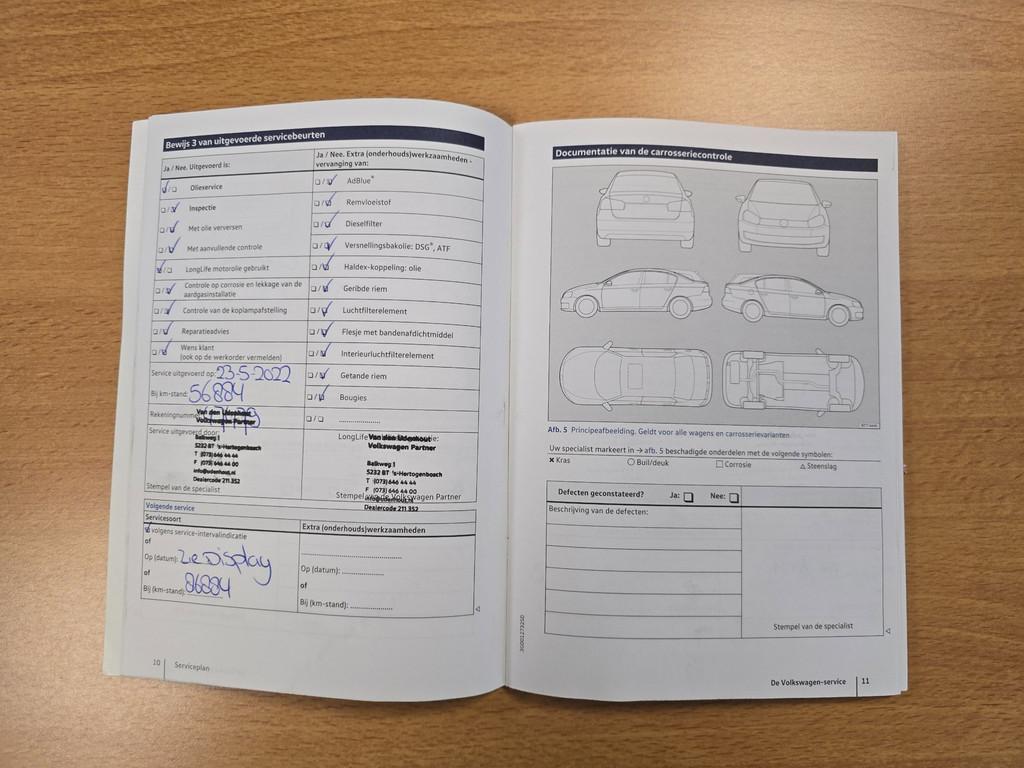 Bewijs 3 van uitgevoerde servicebeurten
Ja / Nee. Uitgevoerd is:
Olieservice
Inspectie
Met olie verversen
Met aanvullende controle
LongLife motorolie gebruikt
Controle op corrosie en lekkage van de
aardgasinstallatie
Controle van de koplampafstelling
Reparatieadvies
Wens klant
(ook op de werkorder vermelden)
Service uitgevoerd op: 23-5-2022
Bij km-stand: 56884
Rekeningnummer
Van den Udenhout
Volkswagen Partner
Service uitgevoerd door:
Balkweg 1
5232 BT 's-Hertogenbosch
T (073) 646 44 44
F (073) 646 44 00
info@udenhout.nl
Dealercode 211.352
Stempel van de specialist
Ja / Nee. Extra (onderhouds)werkzaamheden -
vervanging van:
AdBlue®
Remvloeistof
Dieselfilter
Versnellingsbakolie: DSG®, ATF
Haldex-koppeling: olie
Geribde riem
Luchtfilterelement
Flesje met bandenafdichtmiddel
Interieurluchtfilterelement
Getande riem
Bougies
LongLife
Van den Udenhout
Volkswagen Partner
Balkweg 1
5232 BT 's-Hertogenbosch
T (073) 646 44 44
F (073) 646 44 00
info@udenhout.nl
Stempel van de Volkswagen Partner
Dealercode 211.352
Volgende service
Servicesoort
volgens service-intervalindicatie
of
Op (datum): zie Display
of
Bij (km-stand): 86884
Extra (onderhouds)werkzaamheden
Op (datum):
of
Bij (km-stand):
10 Serviceplan
Documentatie van de carrosseriecontrole
Afb. 5 Principeafbeelding. Geldt voor alle wagens en carrosserievarianten.
Uw specialist markeert in → afb. 5 beschadigde onderdelen met de volgende symbolen:
Kras Buil/deuk Corrosie Steenslag
Defecten geconstateerd? Ja: Nee:
Beschrijving van de defecten:
Stempel van de specialist
3G0012732SD
De Volkswagen-service 11